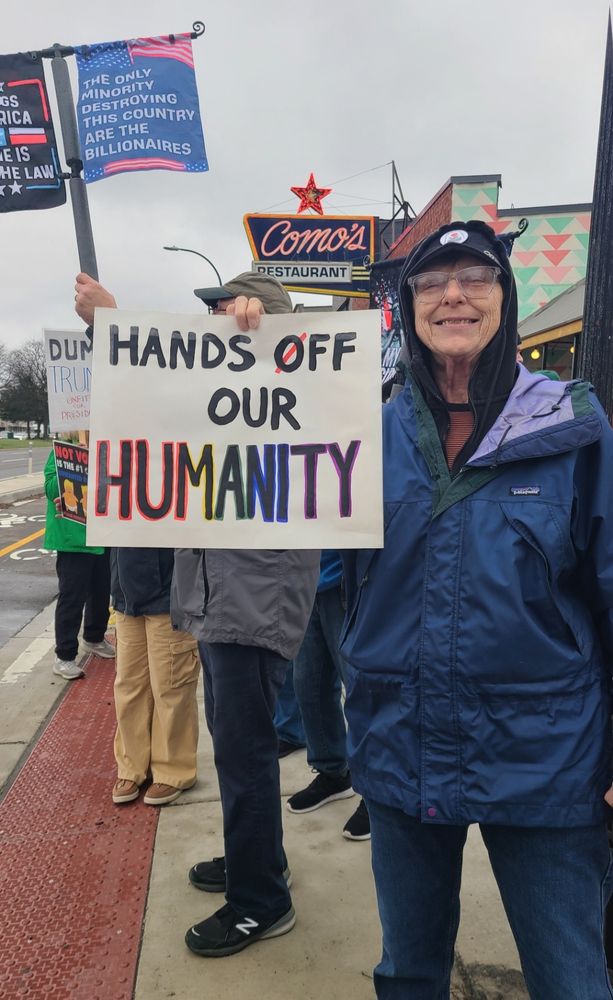 THE ONLY
MINORITY
DESTROYING
THIS COUNTRY
ARE THE
BILLIONAIRES
THE LAW
Como's
RESTAURANT
HANDS OFF
OUR
HUMANITY
TRUM
UNFIT
PRESID
NOT
IS THE #1
patagonia
N